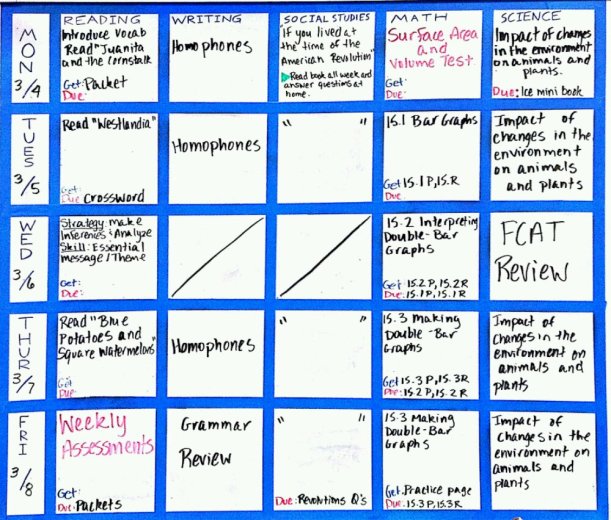 READING WRITING SOCIAL STUDIES MATH SCIENCE
MON 3/4
Introduce Vocab
Read "Juanita
and the Cornstalk
Get: Packet
Due:
Homophones
If you lived at
the time of the
American Revolution"
Read book all week and
answer questions at
home.
Surface Area
and
Volume Test
Get:
Due:
Impact of changes
in the environment
on animals and
plants.
Due: Ice mini book
TUES 3/5
Read "Westlandia"
Get:
Due: Crossword
Homophones
" "
15.1 Bar Graphs
Get: 15.1P, 15.1R
Due:
Impact of
changes in the
environment
on animals
and plants
WED 3/6
Strategy: make
Inferences: Analyze
Skill: Essential
message/Theme
Get:
Due:
15.2 Interpreting
Double-Bar
Graphs
Get: 15.2P, 15.2R
Due: 15.1P, 15.1R
FCAT
Review
THUR 3/7
Read "Blue
Potatoes and
Square Watermelons"
Get:
Due:
Homophones
" "
15.3 Making
Double-Bar
Graphs
Get: 15.3P, 15.3R
Due: 15.2P, 15.2R
Impact of
Changes in the
environment on
animals and
plants
FRI 3/8
Weekly
Assessments
Get:
Due: Packets
Grammar
Review
" "
Due: Revolutions Q's
15.3 Making
Double-Bar
Graphs
Get: Practice page
Due: 15.3P, 15.3R
Impact of
changes in the
environment on
animals and
plants